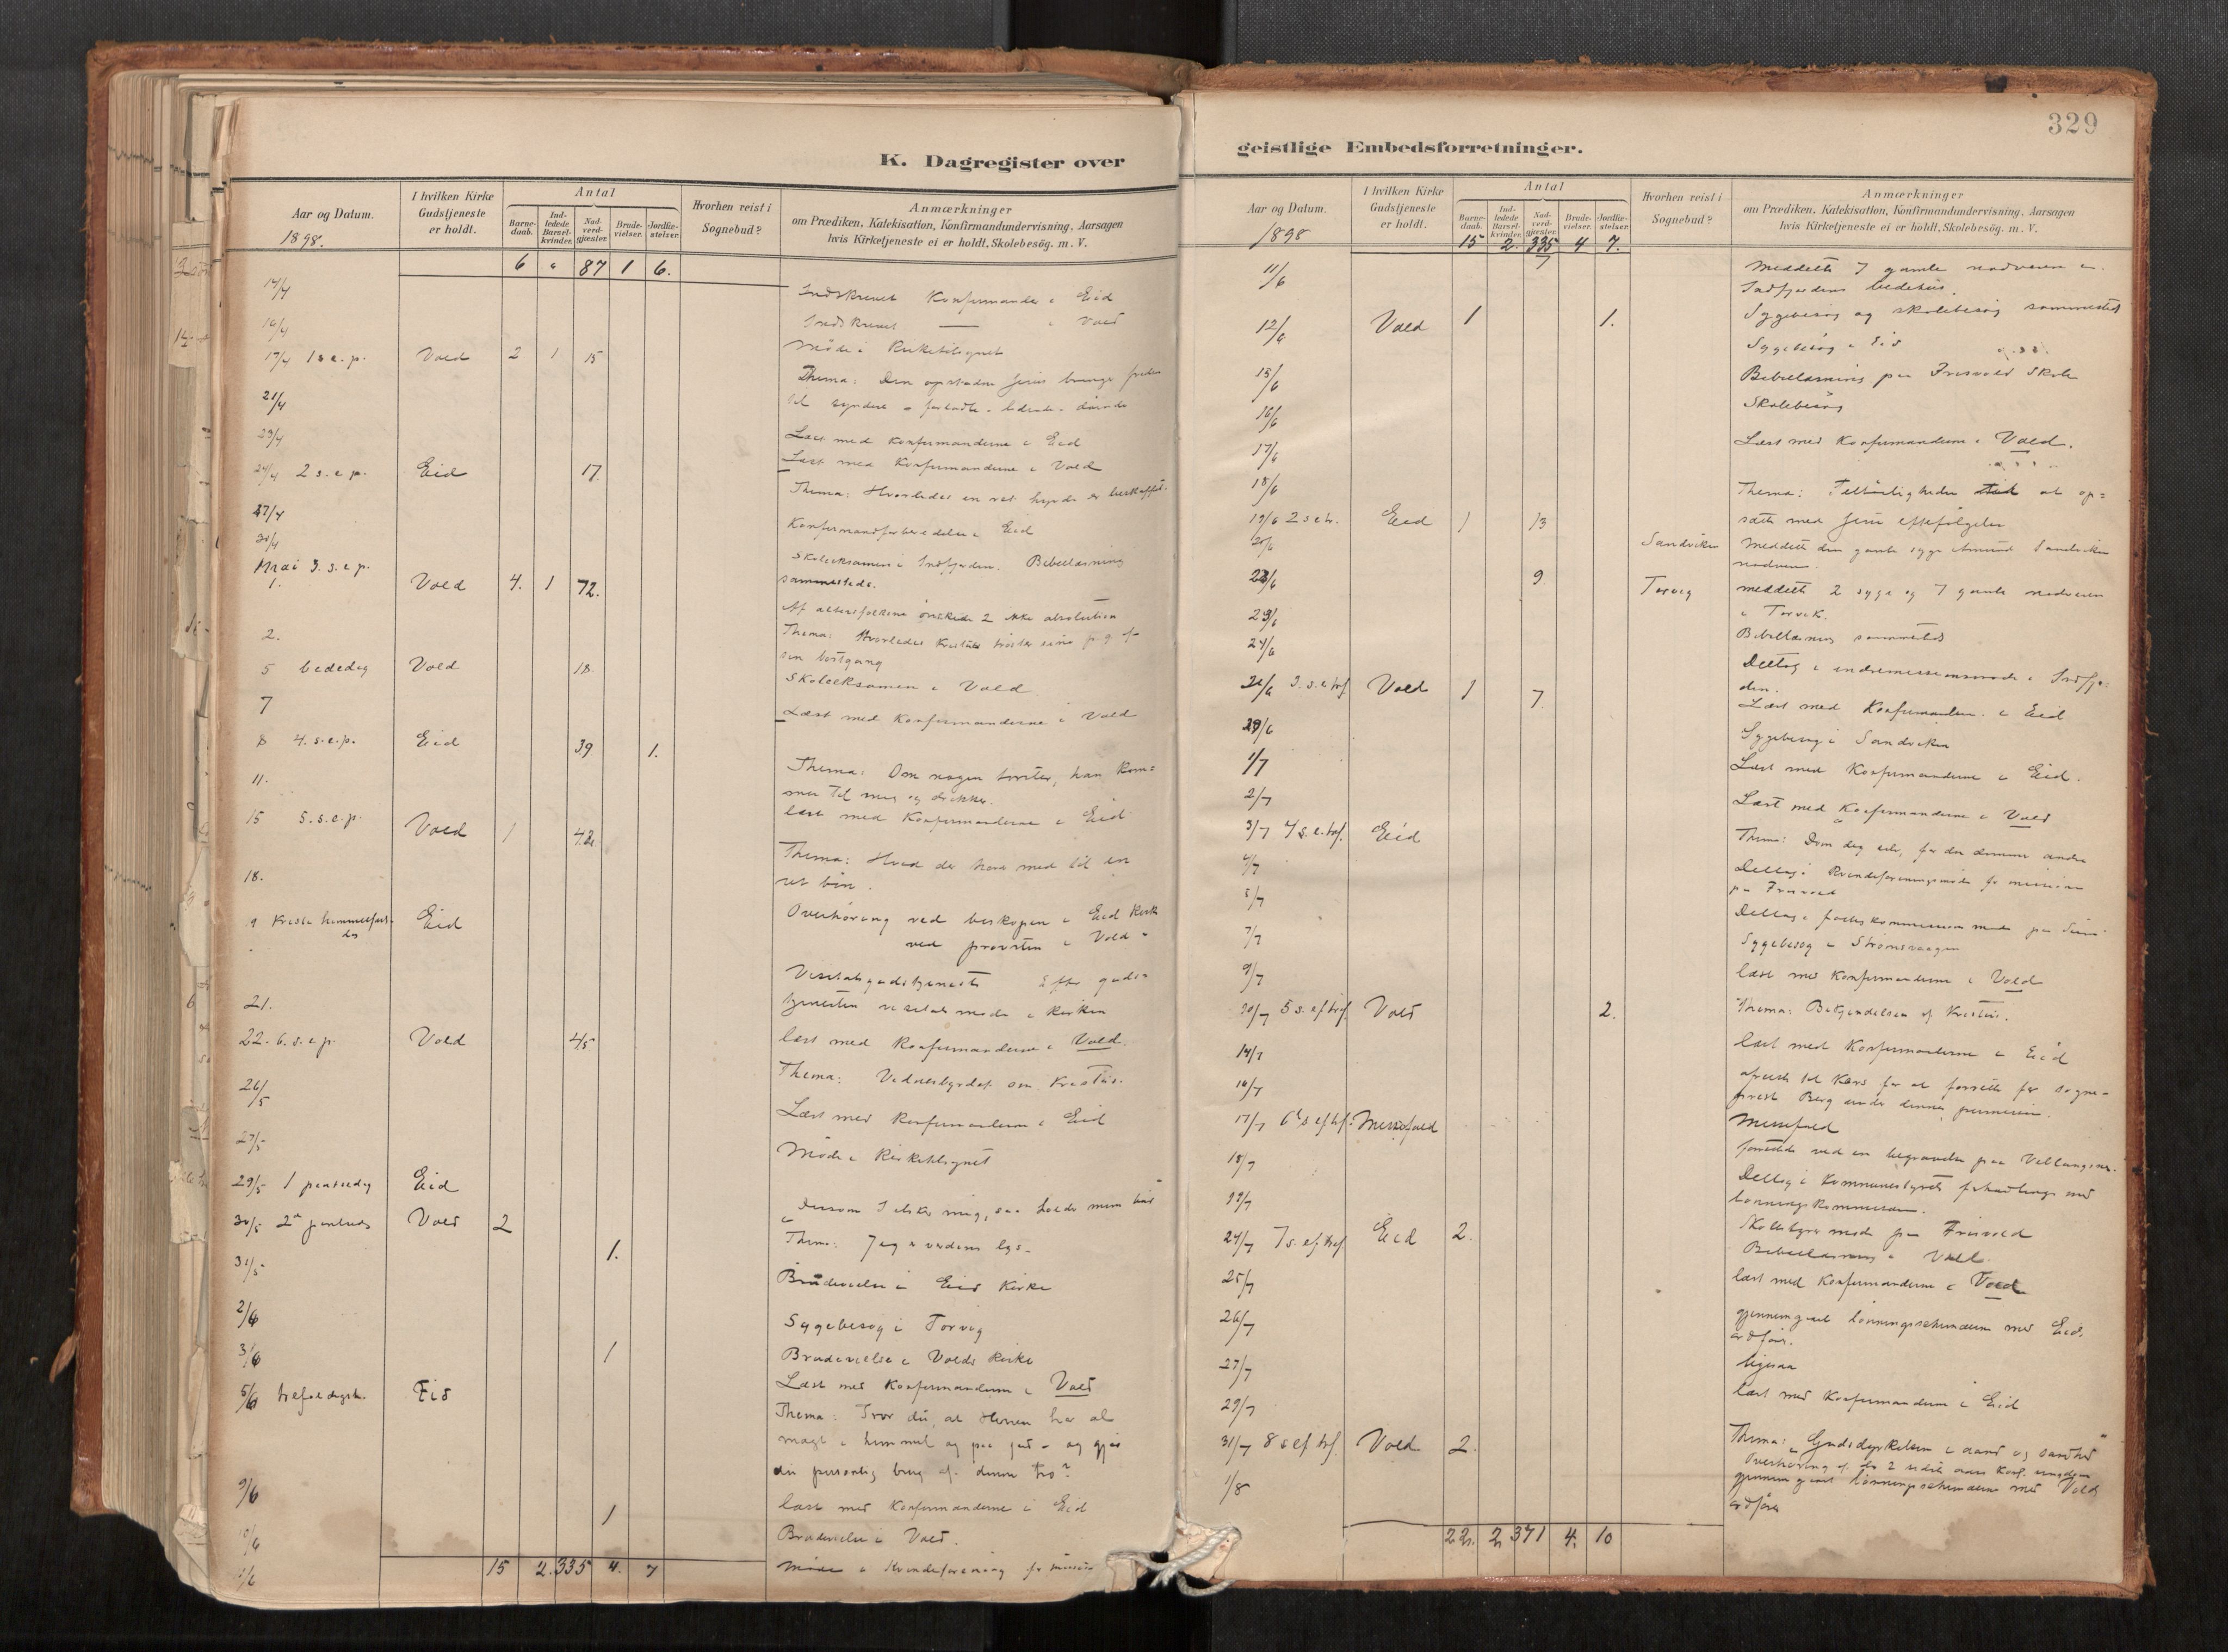 K. Dagregister over
Aar og Datum.
1898.
I hvilken Kirke Gudstjeneste er holdt.
Antal
Barnedaab.
Indledede Barselkvinder.
Nadverdgjester.
Brudevielser.
Jordfæstelser.
Hvorhen reist i Sognebud?
Anmærkninger
om Prædiken, Katekisation, Konfirmandundervisning, Aarsagen
hvis Kirketjeneste ei er holdt, Skolebesög. m. V.
6 " 87 1 6.
14/4 Indskrevet Konfirmander i Eid
16/4 Indskrevet — i Vold
17/4 1 s e. p. Vold 2 1 15 Möde i Kirketilsynet
Thema: Den opstandne Jesus bringer freden
til syndere
21/4 Læst med Konfirmanderne i Eid
23/4 Læst med Konfirmanderne i Vold
24/4 2 s. e p. Eid 17. Thema: Hvorledes en ret hyrde er beskaffet.
27/4 Konfirmandforberedelse i Eid
30/4 Skoleeksamen i Indfjorden. Bibellæsning
sammesteds.
Mai 3. s. e p.
1. Vold 4. 1 72. Af altersfolkene önskede 2 ikke absolution
Thema: Hvorledes Kristus tröster sine
sin bortgang
2. Skoleeksamen i Vold
5 bededag Vold 18.
7 Læst med Konfirmanderne i Vold
8 4. s. e. p. Eid 39 1. Thema: Om nogen törster, han kom=
mer til mig og drikker.
11. læst med Konfirmanderne i Eid
15 5. s. e. p. Vold 1 42. Thema: Hvad der hører med til en
ret bön.
18. Overhöring ved biskopen i Eid Kirke
ved provsten i Vold "
9 Kristi himmelfarts
dag Eid Visitatsgudstjeneste Efter guds=
tjenesten visitatsmöde i Kirken
21. læst med Konfirmanderne i Vold.
22. 6. s. e p. Vold 45 Thema: Vidnesbyrdet om Kristus.
26/5 Læst med Konfirmanderne i Eid
27/5 Möde i Kirketilsynet
29/5 1 pintsedag Eid „Dersom I elsker mig, saa holder mine bud
30/5 2den pintseda Vold 2 Thema: Jeg er verdens lys.
31/5 1. Brudevielse i Eid Kirke
2/6 Sygebesög i Torvig
3/6 1 Brudevielse i Volds Kirke
Læst med Konfirmanderne i Vold
5/6 trefoldighd. Eid Thema: Tror du, at Herren har al
magt i himmel og paa jord - og gjör
du personlig brug af denne tro?
9/6 læst med Konfirmanderne i Eid
10/6 1 Brudevielse i Vold.
Möde i Kvindeforening for mission
15 2. 335 4. 7
329
geistlige Embedsforretninger.
Aar og Datum.
1898
I hvilken Kirke Gudstjeneste er holdt.
Antal
Barnedaab.
Indledede Barselkvinder.
Nadverdgjester.
Brudevielser.
Jordfæstelser.
Hvorhen reist i Sognebud?
Anmærkninger
om Prædiken, Katekisation, Konfirmandundervisning, Aarsagen
hvis Kirketjeneste ei er holdt, Skolebesög. m. V.
15 2. 335 4 7.
11/6 7 Meddelte 7 gamle nadveren i
Indfjordens bedehus.
Sygebesög og skolebesög sammesteds
12/6 Vold 1 1. Sygebesög i Eid
15/6 Bibellæsning paa Frisvold Skole
16/6 Skolebesög
17/6 Læst med Konfirmanderne i Vold.
18/6
19/6 2 s e tr. Eid 1 13 Thema: at op=
sætte med Jesu efterfölgelse
20/6 Sandviken Meddelte den gamle syge Amund Sandviken
nadveren.
23/6 9 Torvig meddelte 2 syge og 7 gamle nadveren
i Torvik.
Bibellæsning sammesteds
24/6 Deltog i indremissionsmöde i Indfjor=
den.
Læst med Konfirmandern. i Eid
26/6 3. s. e. tref. Vold 1 7.
29/6 Sygebesög i Sandviken
1/7 Læst med Konfirmanderne i Eid.
2/7 Læst med Konfirmanderne i Vold
3/7 4 s. e. tref. Eid Thema: Döm dig selv, för du dömmer andre
4/7 Deltog i Kvindeforeningsmöde for missionen
paa Frisvold
7/7 Sygebesög i Strömsvaagen
9/7 læst med Konfirmanderne i Vold
10/7 5 s. ef tref. Vold 2. Thema: Bekjendelsen af Kristus.
14/7 læst med Konfirmanderne i Eid
16/7 afreist til Kors for at forrette for sogne=
prest Berg under dennes permission.
17/7 6te s ef tref. Messefald Messefald
18/7 forrettede ved en begravelse paa
19/7 Deltog i Kommunestyrets forhandlinger med
lönningskommissionen.
Skolestyremöde paa Frisvold
24/7 7 s. ef. tref Eid 2. Bibellæsning i Vold
25/7 læst med Konfirmanderne i Vold
26/7 gjennemgaat lönningsschemaerne med Eids
ordförer.
27/7 ligesaa
29/7 læst med Konfirmanderne i Eid
31/7 8 s ef tref. Vold 2. Thema: „Gudsdyrkelsen i aand og sandhed"
1/8 gjennemgaaet lönningsschemaerne med Volds
ordförer
22. 2 371 4. 10